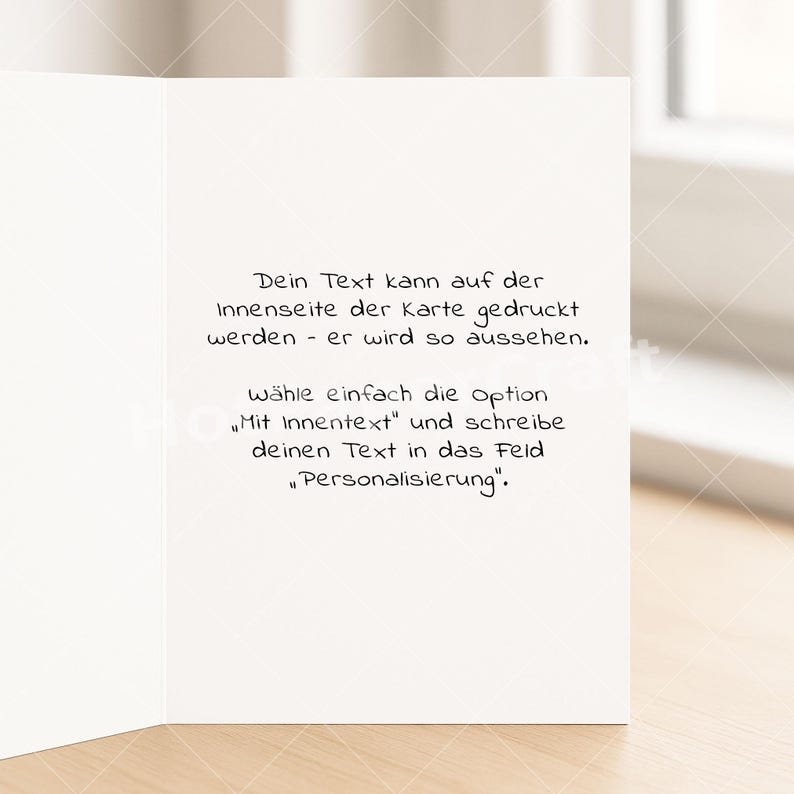 Dein Text kann auf der
Innenseite der Karte gedruckt
werden - er wird so aussehen.
Wähle einfach die Option
„Mit Innentext" und schreibe
deinen Text in das Feld
„Personalisierung".